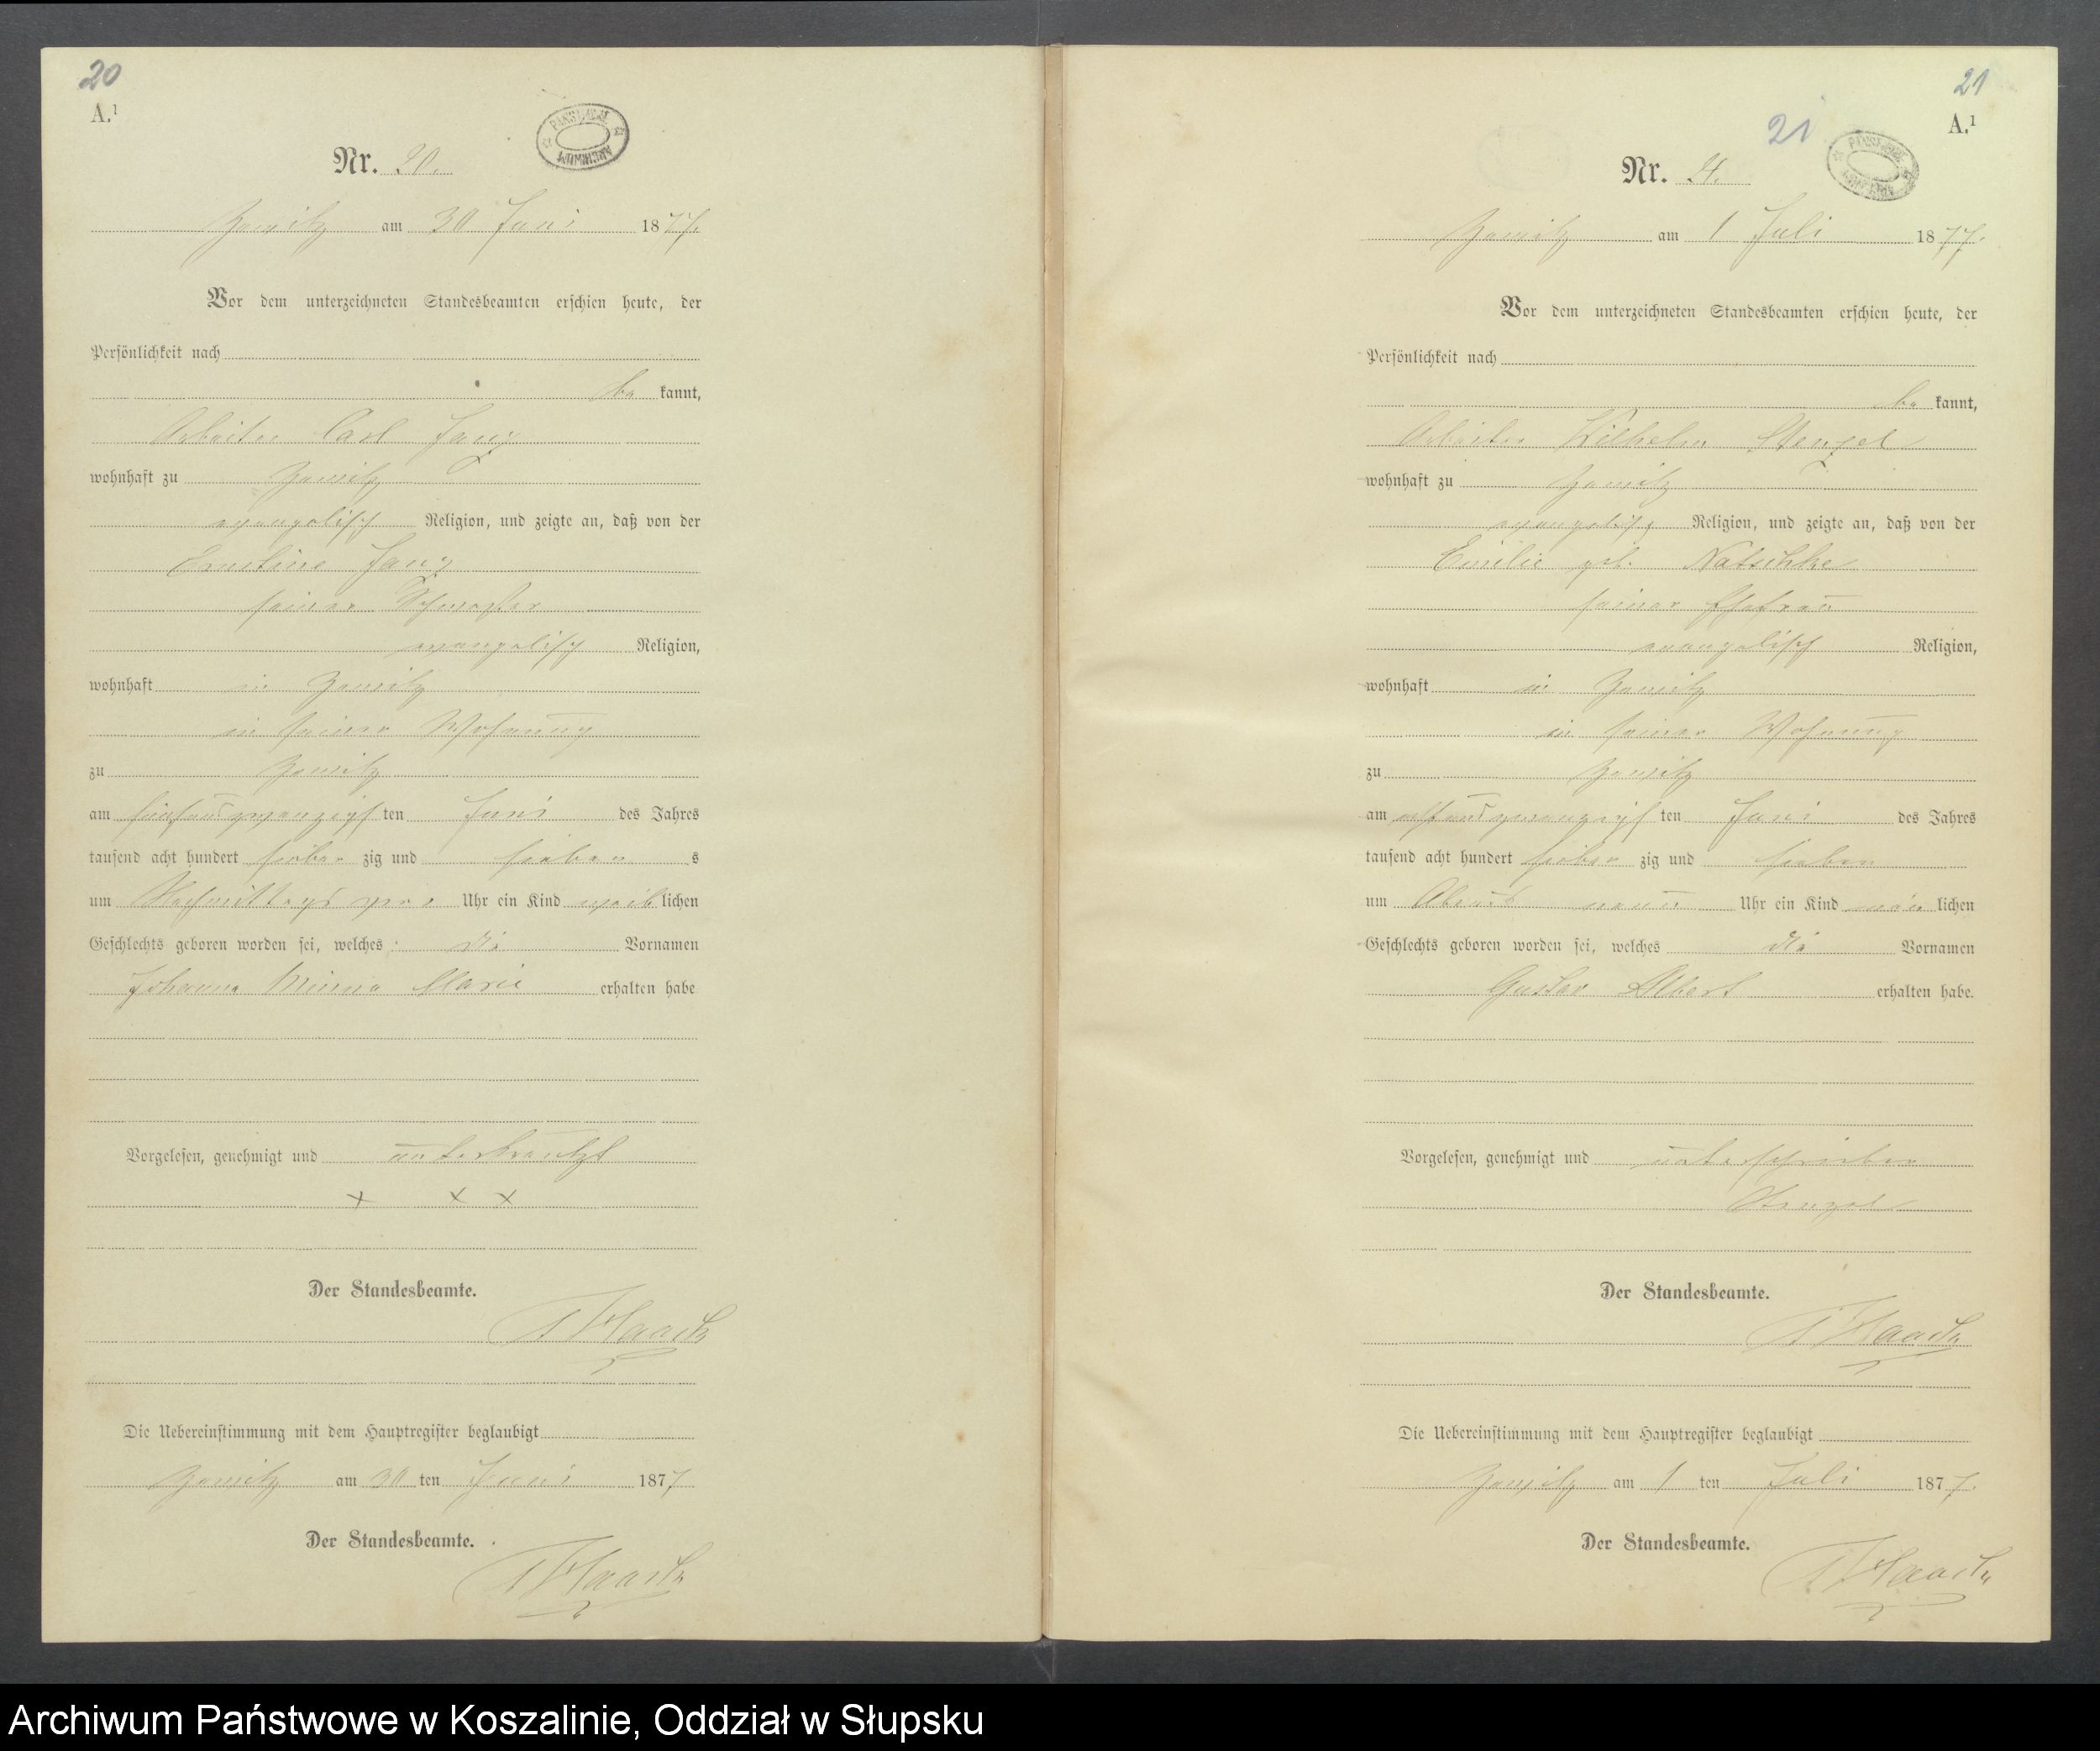 20
A.¹
PAŃSTWOWE ARCHIWUM
Nr. 20.
Zewitz am 30 Juni 1877.
Vor dem unterzeichneten Standesbeamten erschien heute, der
Persönlichkeit nach
be kannt,
Arbeiter Carl
wohnhaft zu Zewitz
evangelisch Religion, und zeigte an, daß von der
Ernestine
seiner Schwester
evangelisch Religion,
wohnhaft in Zewitz
in seiner Wohnung
zu Zewitz
am fünfundzwanzigs ten Juni des Jahres
tausend acht hundert sieben zig und sieben s
um Nachmittags zwei Uhr ein Kind weib lichen
Geschlechts geboren worden sei, welches die Vornamen
Johanna Minna Marie erhalten habe
Vorgelesen, genehmigt und unterkreutzt
x x x
Der Standesbeamte.
Haack
Die Uebereinstimmung mit dem Hauptregister beglaubigt
Zewitz am 30 ten Juni 1877
Der Standesbeamte.
Haack
21
A.¹
21
PAŃSTWOWE ARCHIWUM
Nr. 21.
Zewitz am 1 Juli 1877.
Vor dem unterzeichneten Standesbeamten erschien heute, der
Persönlichkeit nach
be kannt,
Arbeiter Wilhelm Stengel
wohnhaft zu Zewitz
evangelisch Religion, und zeigte an, daß von der
Emilie geb. Natschke
seiner Ehefrau
evangelisch Religion,
wohnhaft in Zewitz
in seiner Wohnung
zu Zewitz
am achtundzwanzigs ten Juni des Jahres
tausend acht hundert sieben zig und sieben
um Abends neun Uhr ein Kind män lichen
Geschlechts geboren worden sei, welches die Vornamen
Gustav Albert erhalten habe.
Vorgelesen, genehmigt und unterschrieben
Stengel
Der Standesbeamte.
Haack
Die Uebereinstimmung mit dem Hauptregister beglaubigt
Zewitz am 1 ten Juli 1877.
Der Standesbeamte.
Haack
Archiwum Państwowe w Koszalinie, Oddział w Słupsku